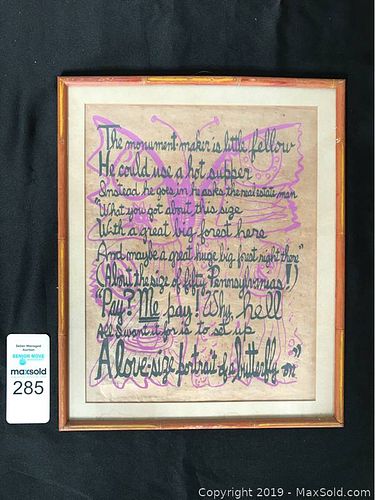 The monument-maker is little fellow
He could use a hot supper
Instead he goes in he asks the real estate man
"What you got about this size
With a great big forest here
And maybe a great huge big forest right there"
(About the size of fifty Pennsylvanias!)
"Pay? Me pay! Why, hell
All I want it for is to set up
A love-size portrait of a butterfly on"
Seller Managed
Auction
SENIOR MOVE
maxsold
285
Copyright © 2019 - MaxSold.com